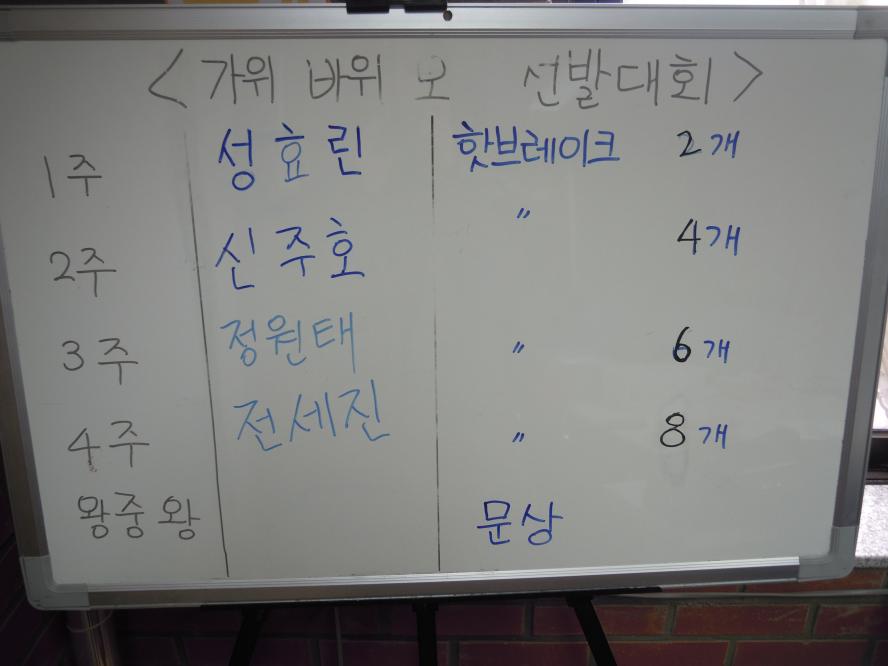 <가위 바위 보 선발대회>
1주 성효린 핫브레이크 2개
2주 신주호 〃 4개
3주 정원태 〃 6개
4주 전세진 〃 8개
왕중왕 문상